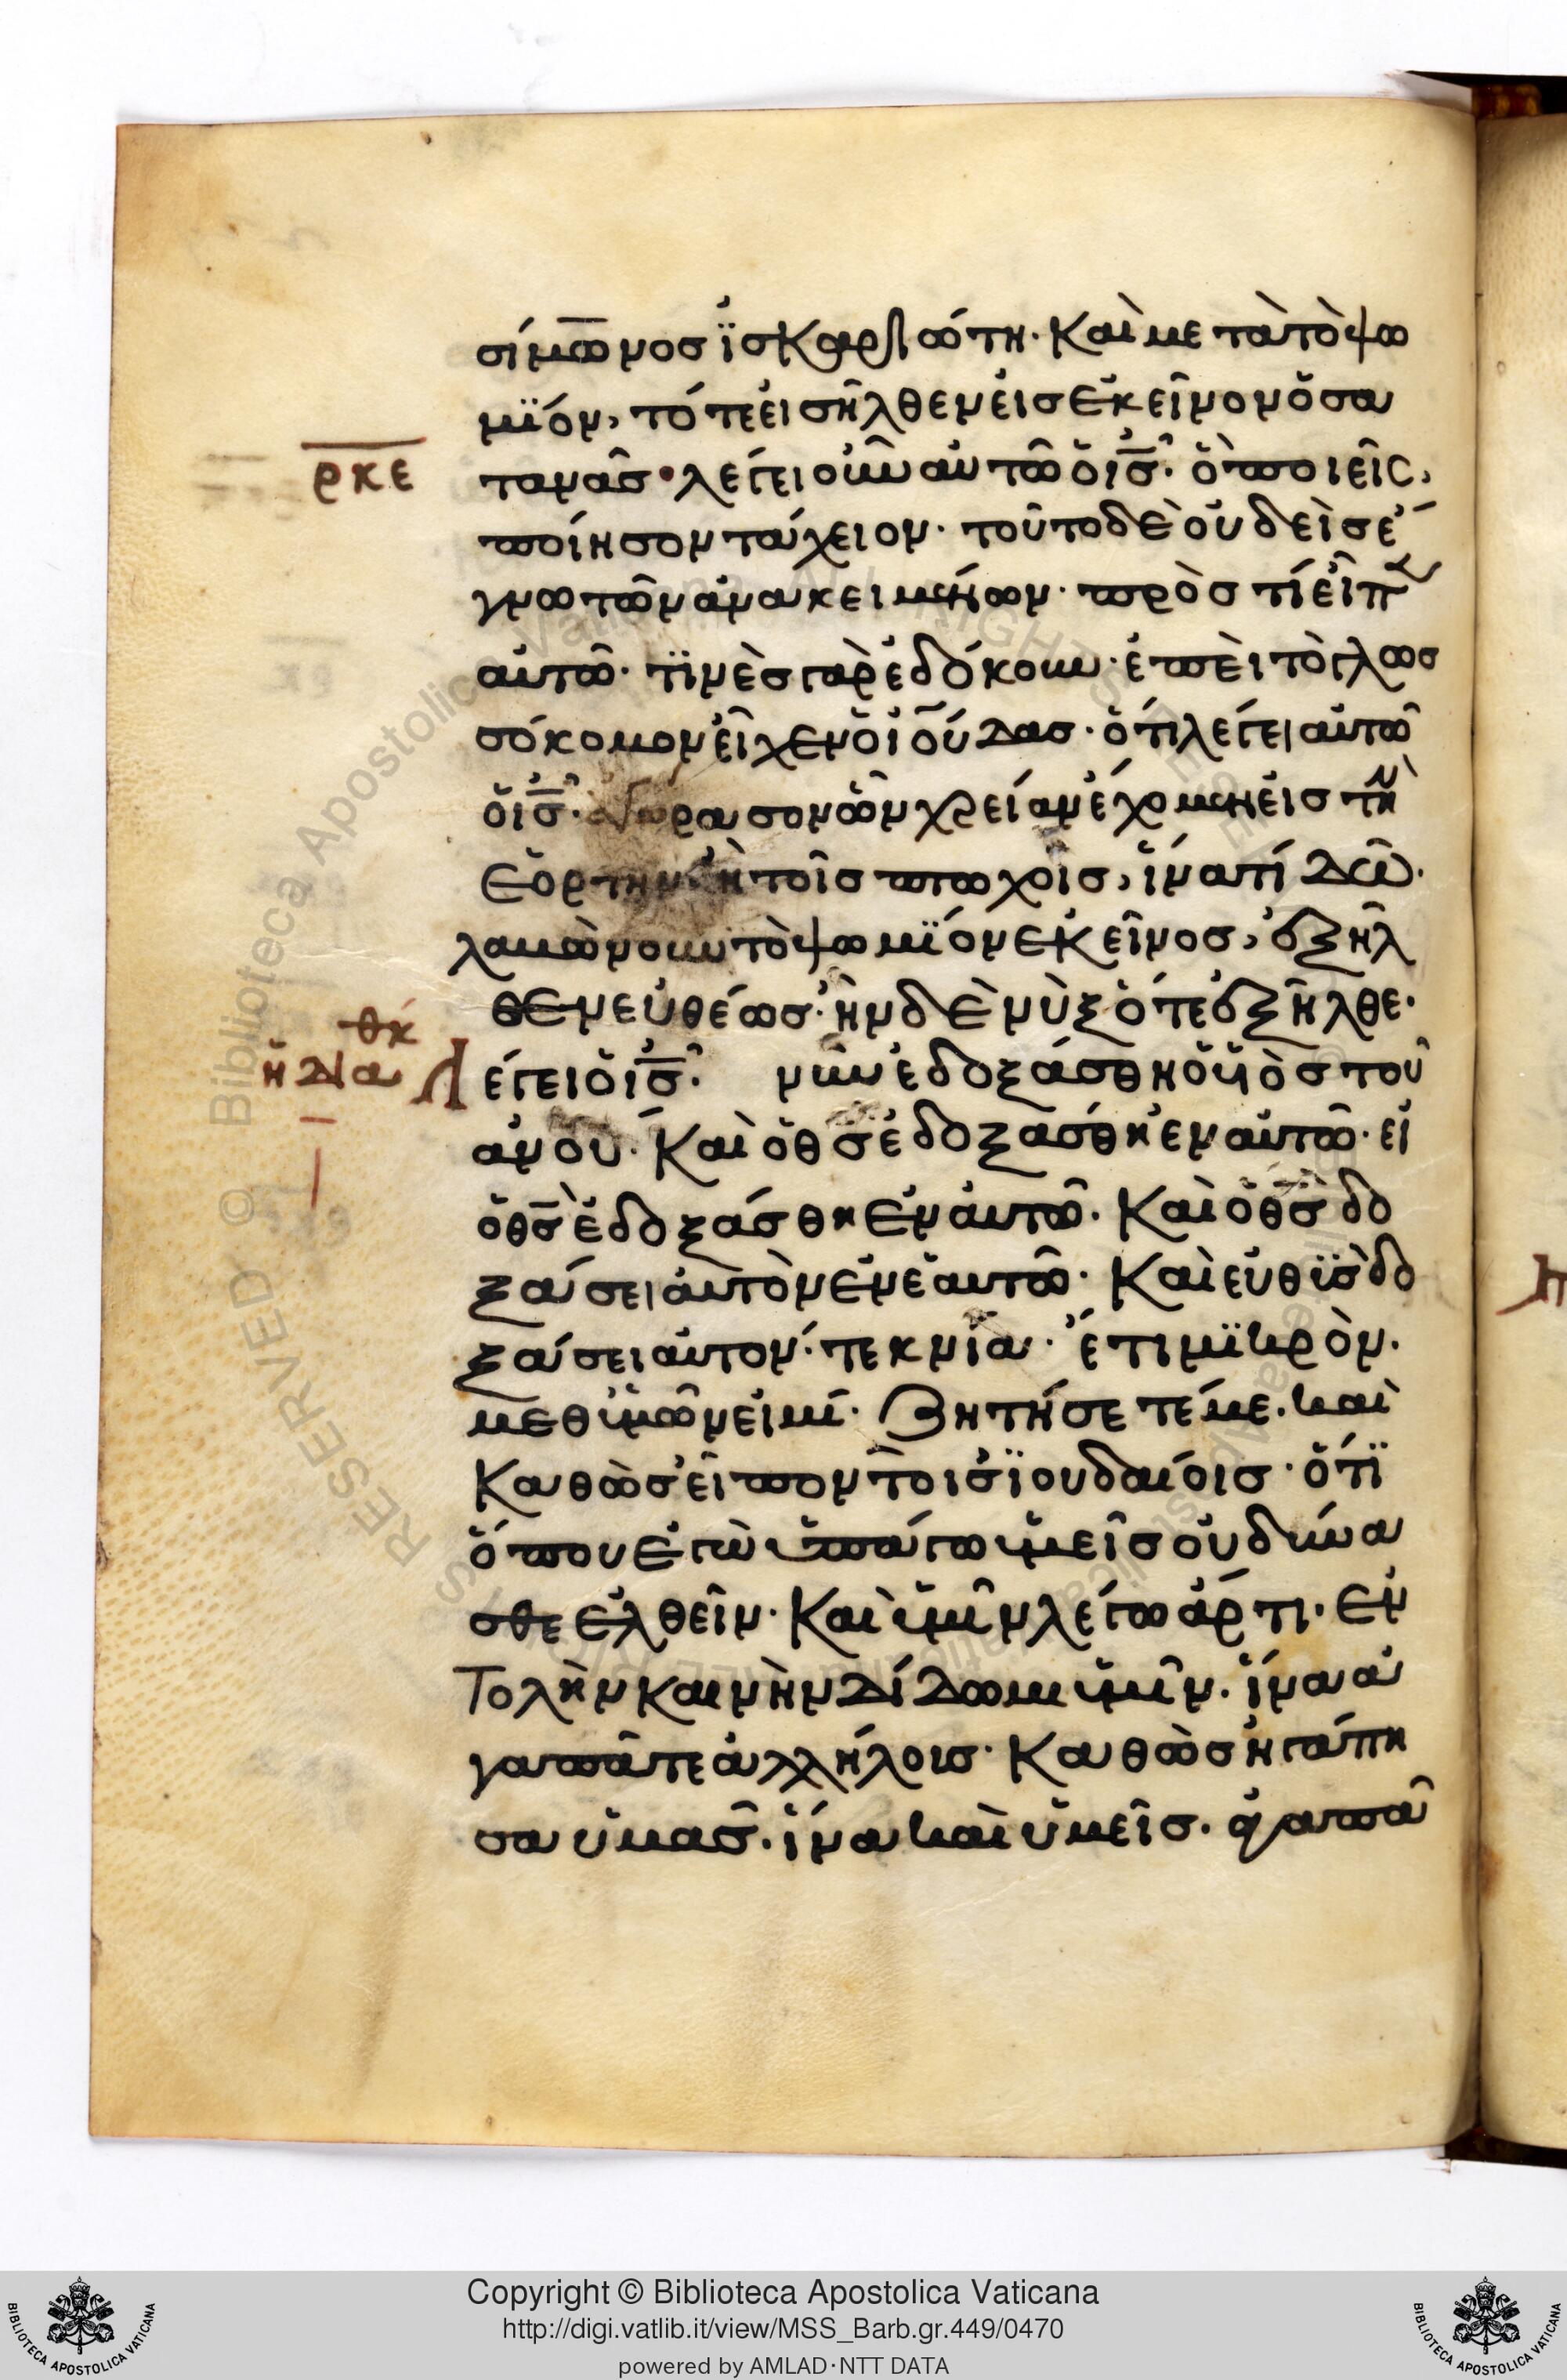 σίμωνος ἰσκαριώτη· Καὶ μετὰ τὸ ψω
μίον, τότε εἰσῆλθεν εἰς ἐκεῖνον ὁ σα
ρκε
τανᾶσ· λέγει οὖν αὐτῶ ὁ ισ· ὃ ποιεῖς,
ποίησον τάχειον· τοῦτο δὲ οὐδεὶσ ἔ
γνω τῶν ἀνακειμένων· πρὸσ τί εἶπεν
αὐτῶ· τινὲσ γὰρ ἐδόκουν· ἐπεὶ τὸ γλωσ
σόκομον εἶχεν ὁ ἰούδασ· ὅτι λέγει αὐτῶ
ὁ ισ· ἀγόρασον ὧν χρείαν ἔχομεν εἰσ τὴν
ἑορτήν· ἢ τοῖσ πτωχοῖσ, ἵνα τί δῶ·
λαβὼν οὖν τὸ ψωμίον ἐκεῖνοσ, ἐξῆλ
θεν εὐθέωσ· ἦν δὲ νὺξ ὅτε ἐξῆλθε·
ρκθ
Λέγει ὁ ισ· νῦν ἐδοξάσθη ὁ υἱὸσ τοῦ
ανου· Καὶ ὁ θσ ἐδοξάσθη ἐν αὐτῶ· εἰ
ὁ θσ ἐδοξάσθη ἐν αὐτῶ· Καὶ ὁ θσ δο
ξάσει αὐτὸν ἐν ἑαυτῶ· Καὶ εὐθὺσ δο
ξάσει αὐτον· τεκνία· ἔτι μικρὸν·
μεθ ὑμῶν εἰμί· Ζητήσετέ με· καὶ
Καθὼσ εἶπον τοῖσ ἰουδαίοισ· ὅτι
ὅπου ἐγὼ ὑπάγω ὑμεῖσ οὐ δύνα
σθε ἐλθεῖν· Καὶ ὑμῖν λέγω ἄρτι· ἐν
Τολὴν καινὴν δίδωμι ὑμῖν· ἵνα ἀ
γαπᾶτε ἀλλήλοισ· Καθὼσ ἠγάπη
σα ὑμασ· ἵνα καὶ ὑμεῖσ· ἀγαπᾶ
Copyright © Biblioteca Apostolica Vaticana
http://digi.vatlib.it/view/MSS_Barb.gr.449/0470
powered by AMLAD·NTT DATA
BIBLIOTECA APOSTOLICA VATICANA
BIBLIOTECA APOSTOLICA VATICANA